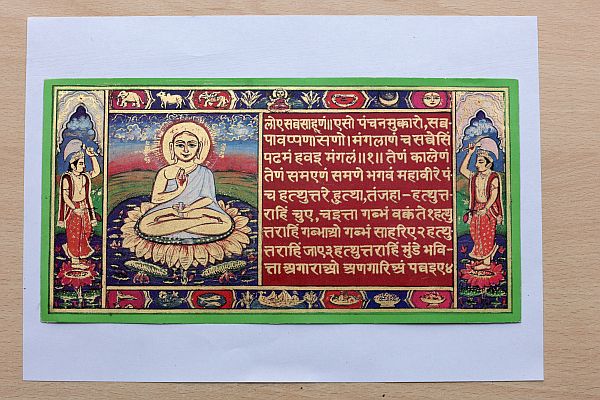 लोएसबसाहूणं॥एसो पंचनमुक्कारो, सब
पावप्पणासणो।मंगलाणं च सबेसिं
पढमं हवइ मंगलं॥१॥ तेणं कालेणं
तेणं समएणं समणे भगवं महावीरे पं
च हत्थुत्तरे हुत्था, तंजहा-हत्थुत्त
राहिं चुए, चइत्ता गब्भं वक्कंते१हत्थु
त्तराहिं गब्भाओ गब्भं साहरिए२हत्थु
त्तराहिं जाए३हत्थुत्तराहिं मुंडे भवि
त्ता अगाराओ अणगारिअं पवइए४